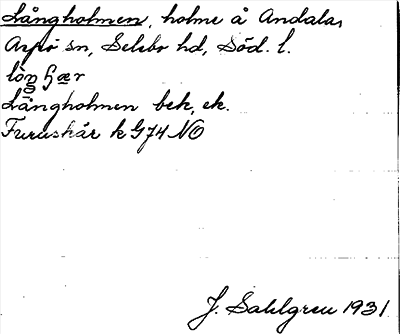 Långholmen, holme å Andala,
Arpö sn, Selebo hd, Söd. l.
Långholmen bek, ek.
Furuskär k G74 NO
J. Sahlgren 1931